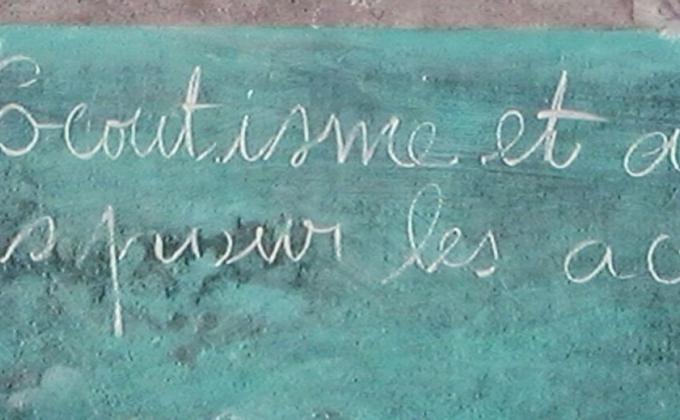 Scoutisme et a
s pour les ac